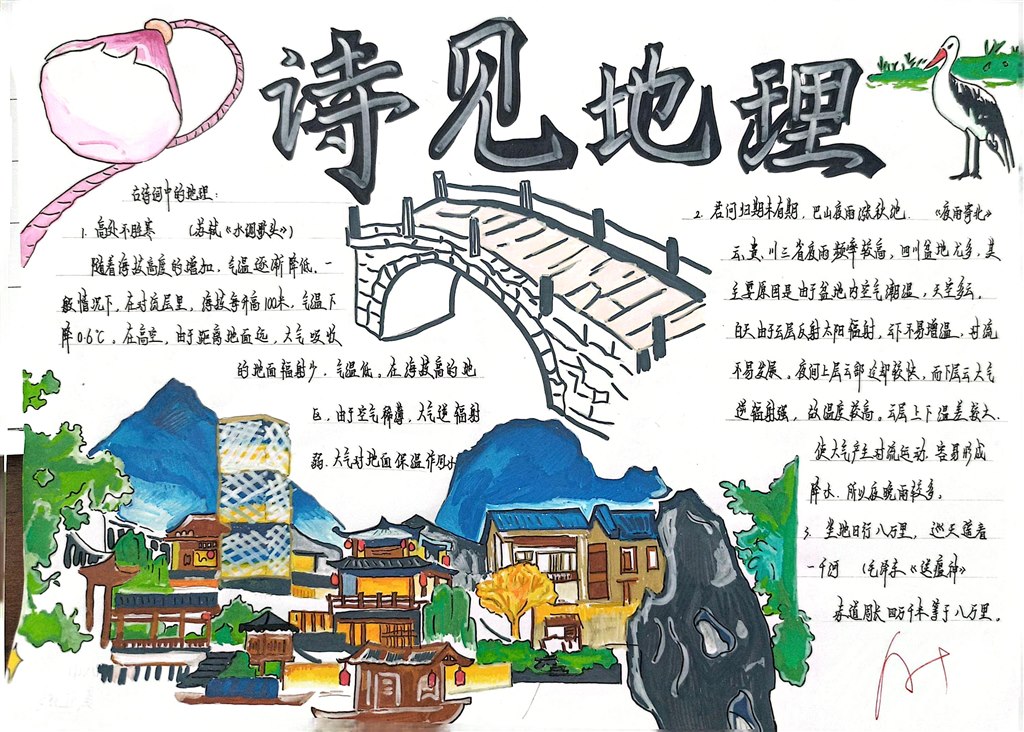 诗见地理
古诗词中的地理：
1. 高处不胜寒 （苏轼《水调歌头》）
随着海拔高度的增加，气温逐渐降低。一
般情况下，在对流层里，海拔每升高100米，气温下
降0.6℃。在高空，由于距离地面远，大气吸收
的地面辐射少，气温低。在海拔高的地
区，由于空气稀薄，大气逆辐射
弱，大气对地面保温作用小
2. 君问归期未有期，巴山夜雨涨秋池 《夜雨寄北》
云、贵、川三省夜雨频率较高，四川盆地尤多，其
主要原因是由于盆地内空气潮湿，天空多云，
白天由于云层反射太阳辐射，云下不易增温，对流
不易发展。夜间上层云部逆却较快，而下层云大气
逆辐射强，故温度较高。云层上下温差较大，
使大气产生对流运动，容易形成
降水，所以夜晚雨较多。
3. 坐地日行八万里，巡天遥看
一千河 （毛泽东《送瘟神》
赤道周长四万千米等于八万里。
A+